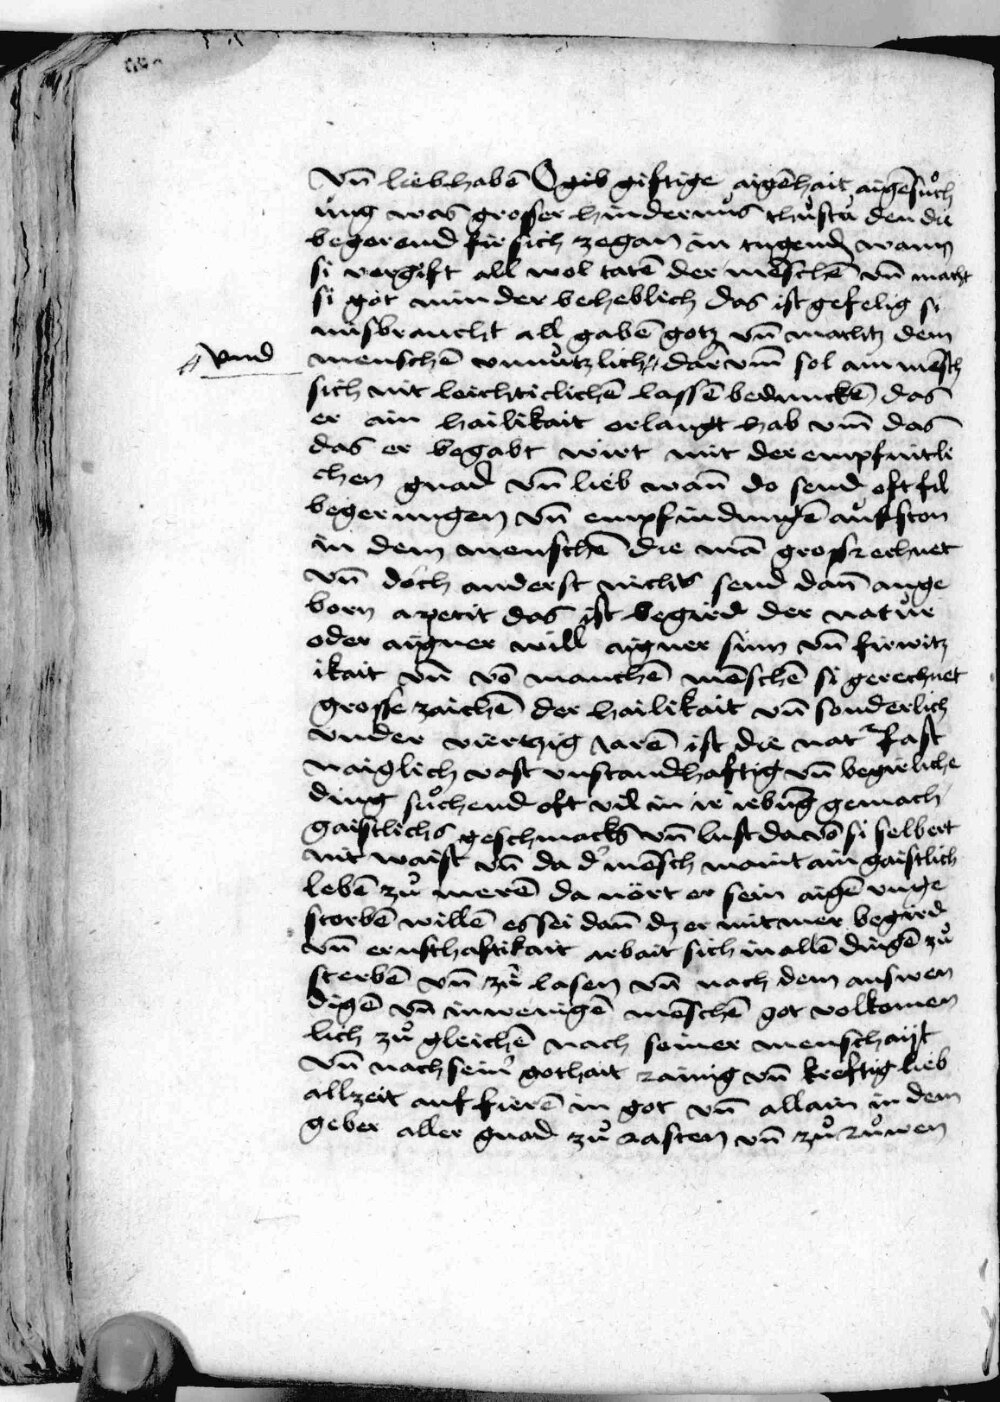 vn̄ liebhabē O gib giftige aigēhait aigēsuͦch
ung was grosser hindernus thuͦstu den die
begerend fir sich zegan in tugend wann
si vergift all wol tatē der mēschē vn̄ macht
si got minder beheblich das ist gefelig si
misbraucht all gabē gotz vn̄ machtz dem
vnd
menschē vnnuͦtzlich dar vm̄ sol ain mēsch
sich nit leichticlichē lassē beduncke͂ das
er ain hailikait erlangt hab vm̄ das
das er begabt wirt mit der empfintli
chen gnad vn̄ lieb wan̄ do send oft fil
begerungen vn̄ empfindungē auͦfston
in dem menschē die mā gross rechnet
vn̄ doch anderst nichts send dan̄ ange
born apetit das ist begird der natuͦr
oder aigner will aigner sinn vn̄ firwitz
ikait vn̄ vō manchē mēschē si gerechnet
grosse zaichē der hailikait vn̄ sonderlich
vnder viertzig iarē ist die nat᷑ fast
naiglich vast vnstandhaftig vn̄ begirliche
ding suͦchend oft vil in ir iebūg gemach
gaistlichs geschmacks vn̄ lust da vō si selbert
nit waist vn̄ da d᷑ mēsch maint ain gaistlich
lebē zuͦ merē da nört er sein aigē vnge
storbē willē es sei dan̄ dz er mit mer begird
vn̄ ernsthaftikait arbait sich in allē dingē zuͦ
sterbē vn̄ zuͦ lasen vn̄ nach dem auswen
digē vn̄ inwenigē mēschē got volkomen
lich zuͦ gleichē nach seiner menschait
vn̄ nach sein᷑ gothait rainig vn̄ kreftig lieb
allzeit auf fierē in got vn̄ allain in dem
geber aller gnad zuͦ rasten vn̄ zuͦ ruͦwen